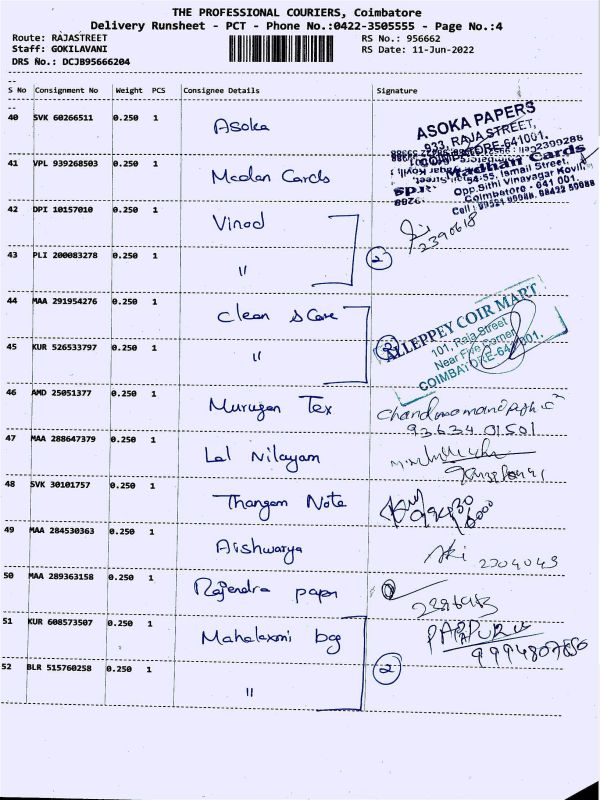 THE PROFESSIONAL COURIERS, Coimbatore
Delivery Runsheet - PCT - Phone No.:0422-3505555 - Page No.:4
Route: RAJASTREET
RS No.: 956662
Staff: GOKILAVANI
RS Date: 11-Jun-2022
DRS No.: DCJB95666204
S No Consignment No Weight PCS Consignee Details Signature
40 SVK 60266511 0.250 1 Asoka
ASOKA PAPERS
933, RAJA STREET,
COIMBATORE-641001.
41 VPL 939268503 0.250 1 Madan Cards
Madhan Cards
54-55, Ismail Street,
Opp.Sithi Vinayagar Kovil,
Coimbatore - 641 001.
42 DPI 10157010 0.250 1 Vinod
2390618
43 PLI 200083278 0.250 1 "
2
44 MAA 291954276 0.250 1 clean & Care
ALLEPPEY COIR MART
101, Raja Street
Near Five Corner
COIMBATORE-641 001.
45 KUR 526533797 0.250 1 "
46 AMD 25051377 0.250 1 Murugan Tex
93634 01501
47 MAA 288647379 0.250 1 Lal Nilayam
48 SVK 30101757 0.250 1 Thangam Note
49 MAA 284530363 0.250 1 Aishwarya
2304043
50 MAA 289363158 0.250 1 Rajendra paper
51 KUR 608573507 0.250 1 Mahalaxmi bag
52 BLR 515760258 0.250 1 "
2